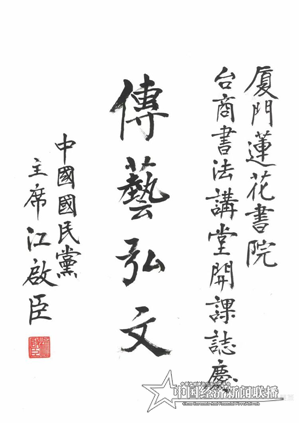 厦門蓮花書院
台商書法講堂開課誌慶
傳藝弘文
中國國民黨
主席江啟臣
中国经济新闻联播